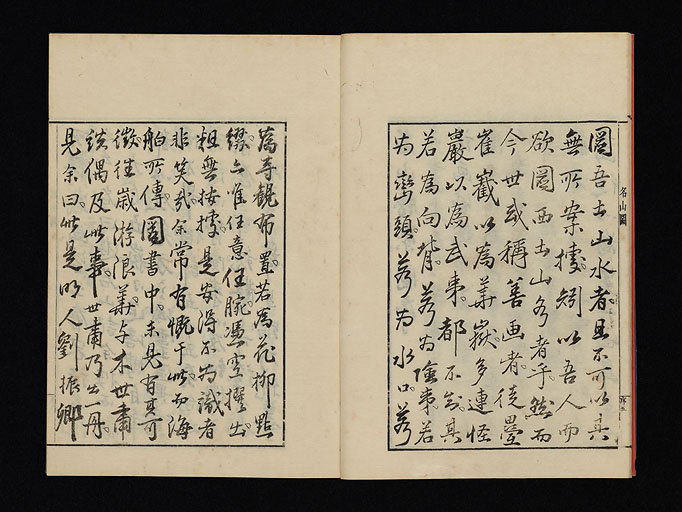 圖吾土山水者且不可以其
無所案據矧以吾人而
欲圖西土山名者乎然而
今世或稱善画者徒壘
崔嶻以為華嶽多連怪
巖以為武東都不知其
若為向背若為陰東若
為巒頭若為水口若
為寺観布置若為花柳點
綴亦唯任意任腕憑空擢出
粗無按據是安得不為識者
非笑哉余常有慨于此而海
舶所傳圖書中未見有其可
徴往歳游浪華与木世肅
談偶及此事世肅乃出一冊
見余曰此是明人劉振卿
名山圖